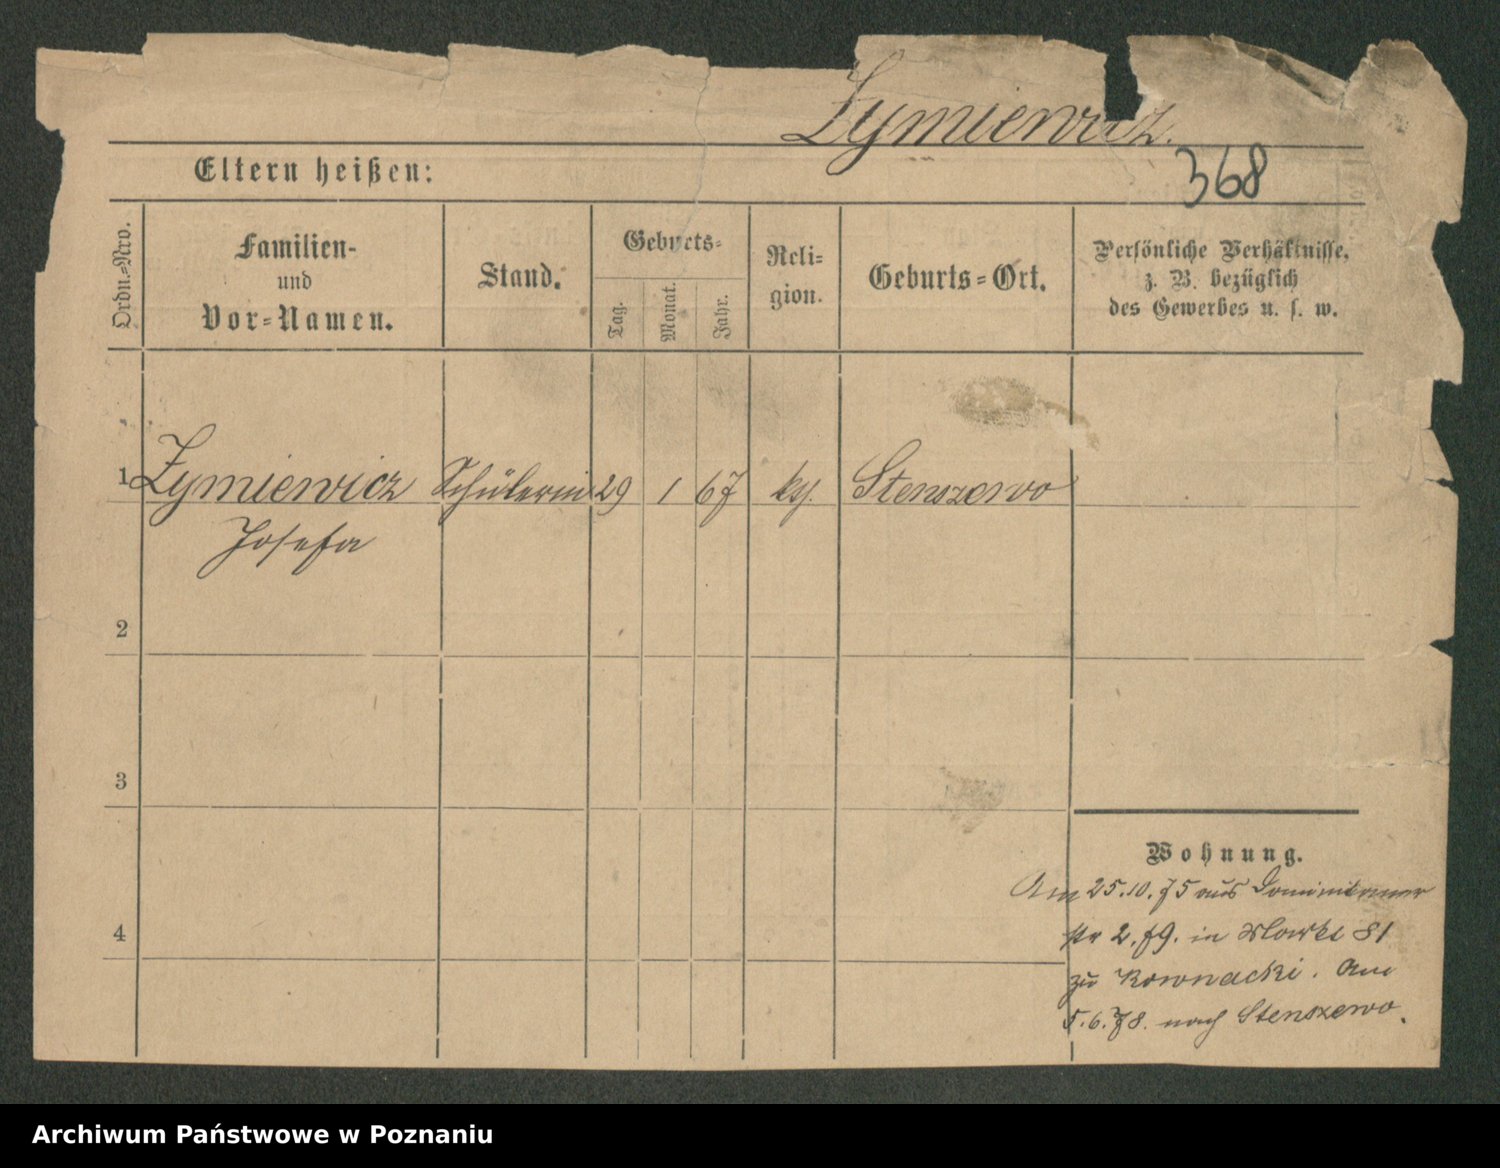 Zymiewicz.
368
Eltern heißen:
Ordn.=Nro.
Familien-
und
Vor=Namen.
Stand.
Geburts=
Tag.
Monat.
Jahr.
Reli=
gion.
Geburts=Ort.
Persönliche Verhältnisse,
z. B. bezüglich
des Gewerbes u. s. w.
1 Zymiewicz Schülerin 29 1 67 ky. Stenszewo
Josefa
2
3
4
Wohnung.
Am 25.10.75 aus Dominikaner
str 2. 79. in Markt 81
zu Kownacki. Am
5.6.78. nach Stenszewo.
Archiwum Państwowe w Poznaniu